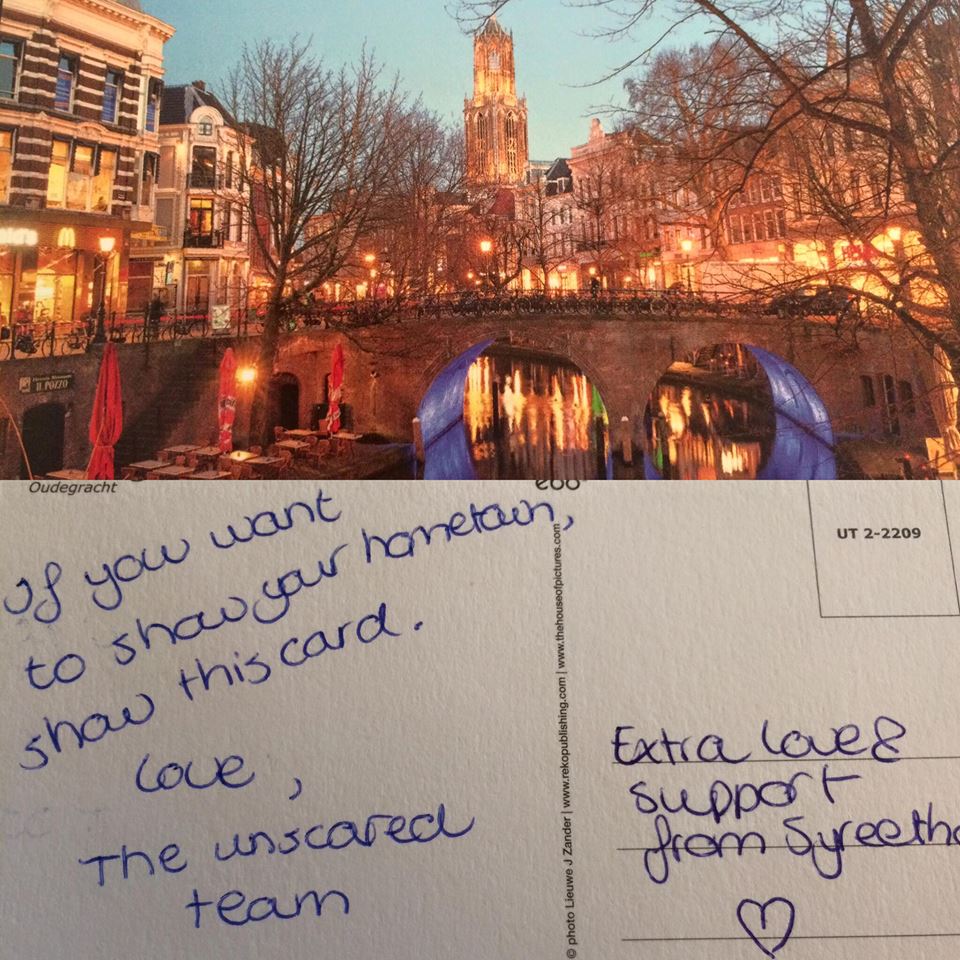 IL POZZO
Oudegracht
If you want
to show your hometown,
show this card.
Love,
The unscared
team
© photo Lieuwe J Zander | www.rekopublishing.com | www.thehouseofpictures.com
UT 2-2209
Extra love &
support
from Syreetha